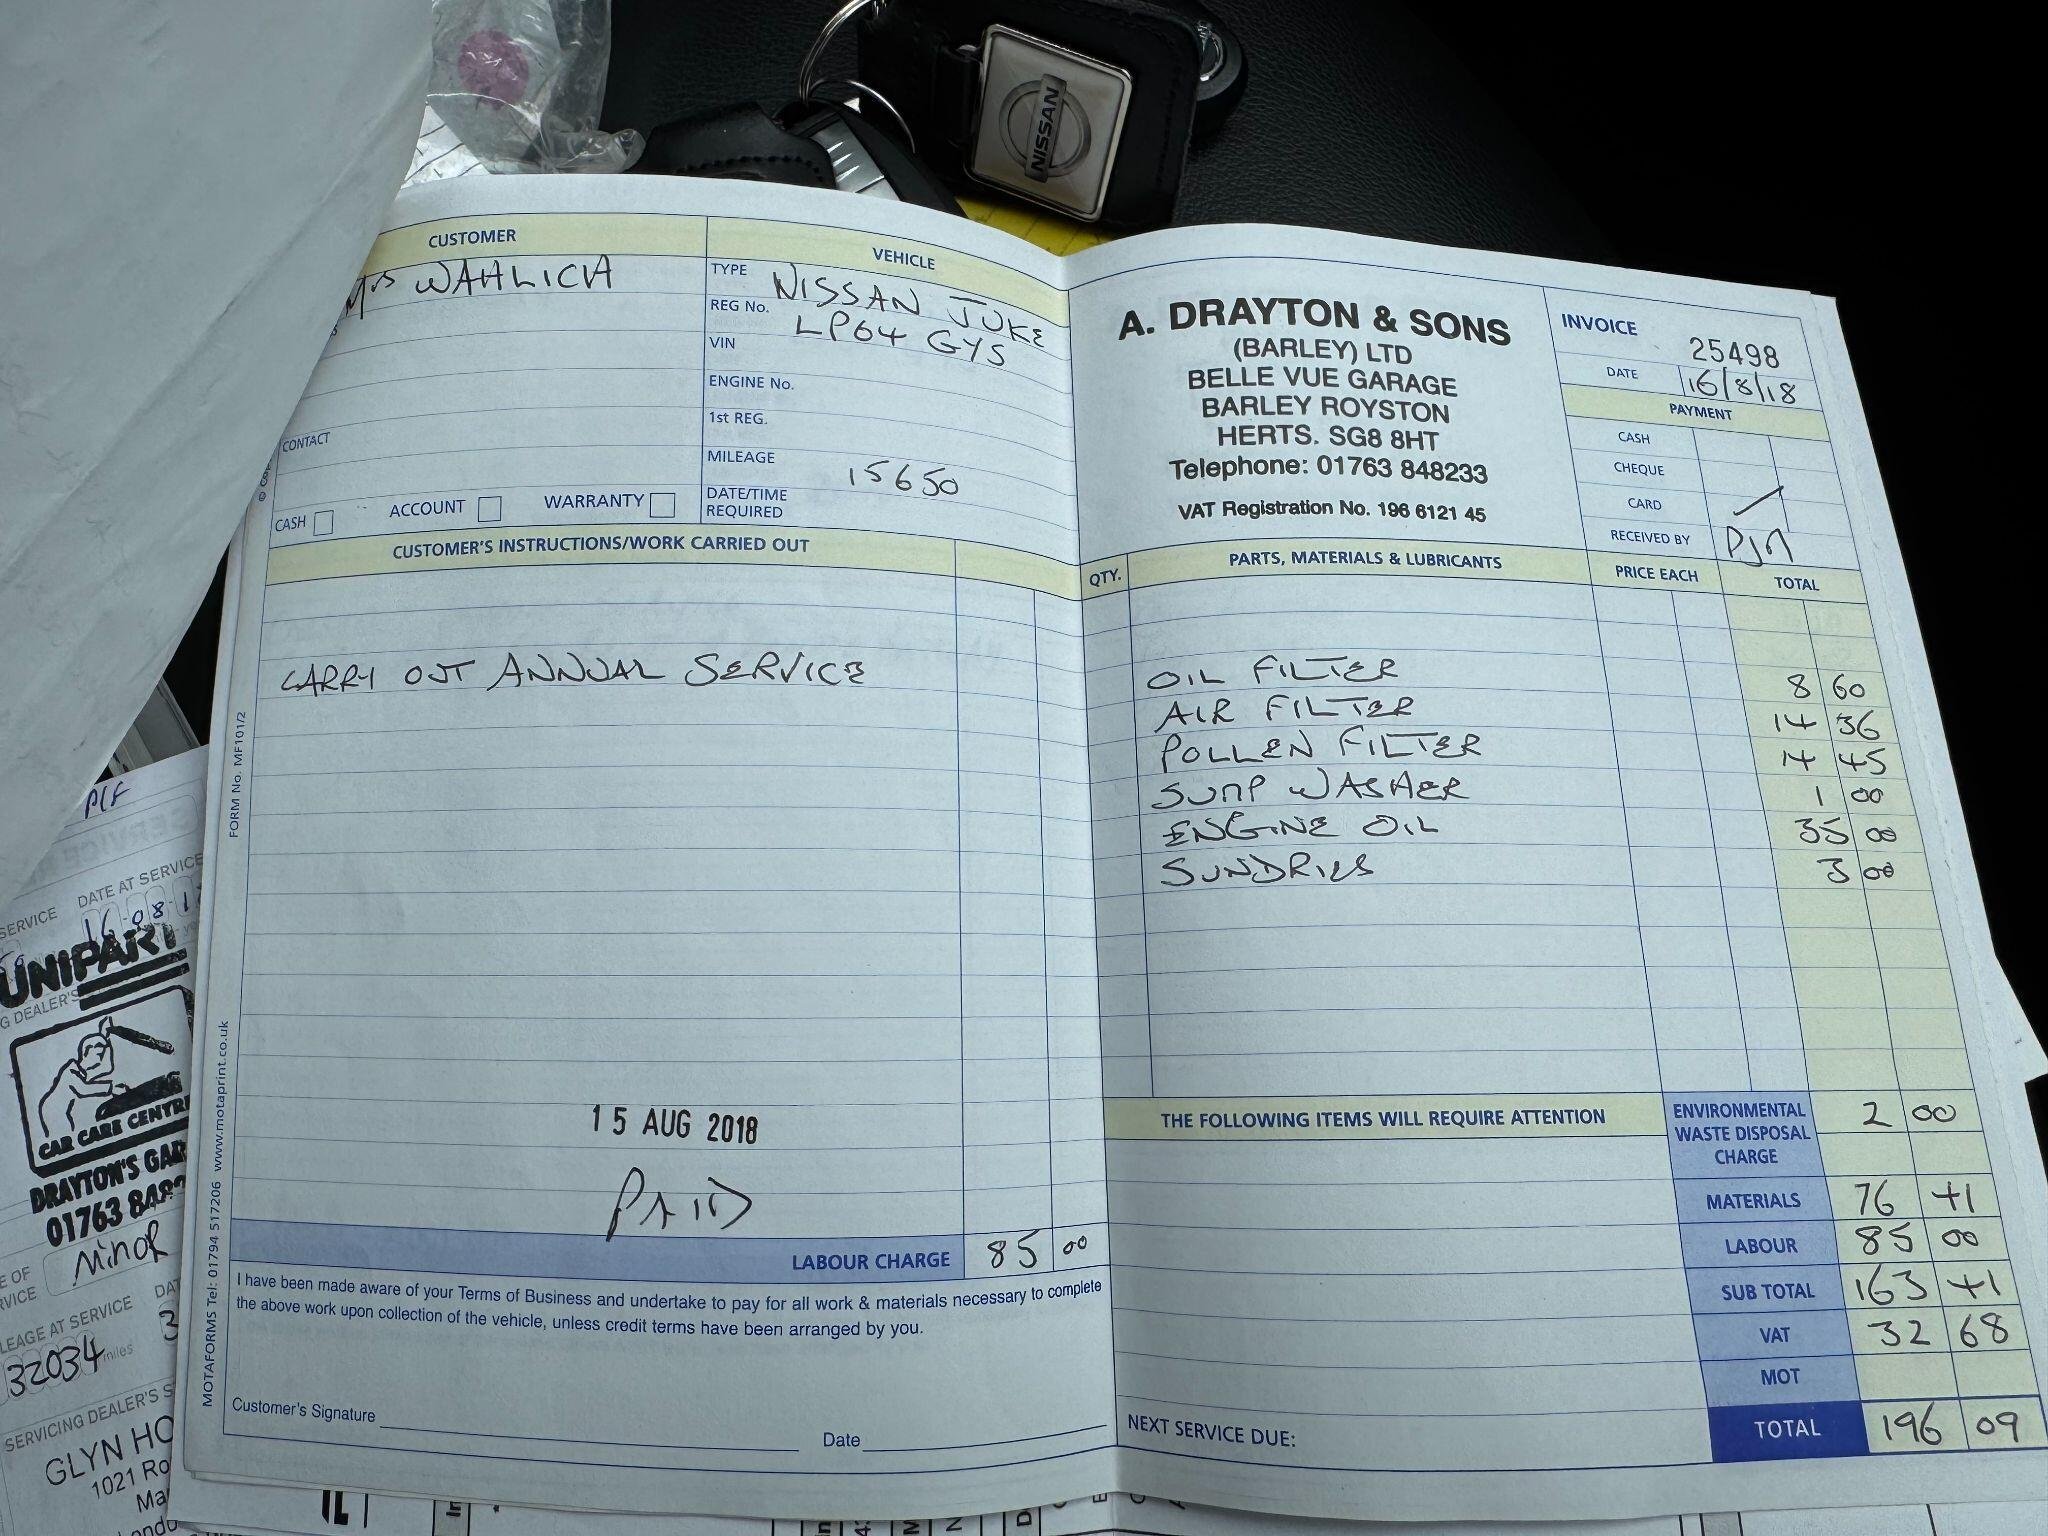 NISSAN
CUSTOMER
Mrs WAHLICH
CONTACT
CASH ACCOUNT WARRANTY
VEHICLE
TYPE NISSAN JUKE
REG No. LP64 GYS
VIN
ENGINE No.
1st REG.
MILEAGE 15650
DATE/TIME
REQUIRED
CUSTOMER'S INSTRUCTIONS/WORK CARRIED OUT
CARRY OUT ANNUAL SERVICE
15 AUG 2018
PAID
LABOUR CHARGE 85 00
I have been made aware of your Terms of Business and undertake to pay for all work & materials necessary to complete
the above work upon collection of the vehicle, unless credit terms have been arranged by you.
Customer's Signature Date
FORM No. MF101/2
MOTAFORMS Tel: 01794 517206 www.motaprint.co.uk
A. DRAYTON & SONS
(BARLEY) LTD
BELLE VUE GARAGE
BARLEY ROYSTON
HERTS. SG8 8HT
Telephone: 01763 848233
VAT Registration No. 196 6121 45
INVOICE 25498
DATE 16/8/18
PAYMENT
CASH
CHEQUE
CARD
RECEIVED BY
QTY. PARTS, MATERIALS & LUBRICANTS PRICE EACH TOTAL
OIL FILTER 8 60
AIR FILTER 14 36
POLLEN FILTER 14 45
SUMP WASHER 1 00
ENGINE OIL 35 00
SUNDRIES 3 00
THE FOLLOWING ITEMS WILL REQUIRE ATTENTION
ENVIRONMENTAL
WASTE DISPOSAL
CHARGE 2 00
MATERIALS 76 41
LABOUR 85 00
SUB TOTAL 163 41
VAT 32 68
MOT
TOTAL 196 09
NEXT SERVICE DUE:
PIF
SERVICE DATE AT SERVICE
16-08-1
UNIPART
G DEALER'S
CAR CARE CENTRE
DRAYTON'S GA
01763 848
Minor
LEAGE AT SERVICE
32034 miles
SERVICING DEALER'S S
GLYN HO
1021 Ro